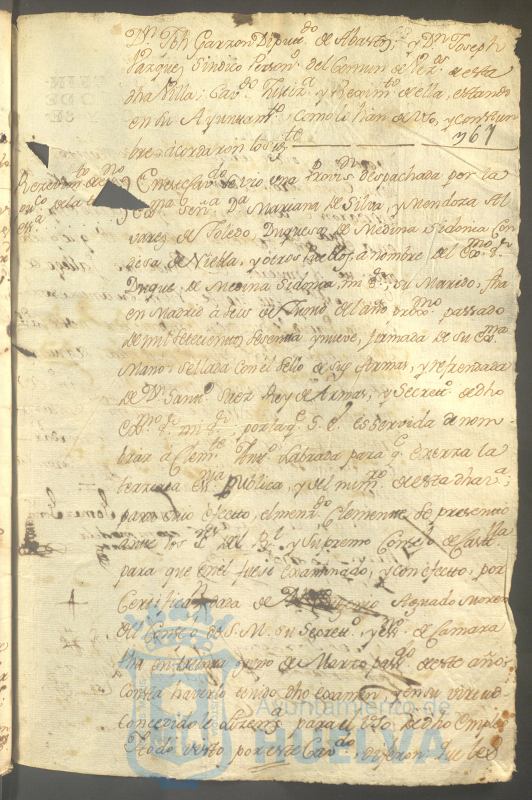 Dn. Jph Garzon Diput.do de Abastos; y Dn Joseph
Vazques Sindico Person.o del Comun de Vez.os de esta
dha Villa; Cav.do Justiz.a y Regim.to de ella, estando
en su Ayuntam.to, como lo han de uso, y costum
bre acordaron lo sig.te
367
En este Cav.do se vio una Provis.n despachada por la
Ex.ma Señ.a D.a Mariana de Silva, y Mendoza Al
varez de Toledo, Duquesa de Medina Sidonia Con
desa de Niebla, y otros Pueblos, a nombre del Ex.mo S.r
Duque de Medina Sidonia, mi S.r su Marido, fha
en Madrid à seis de Junio del año proximo passado
de mil setecientos sesenta y nueve, firmada de su Ex.a
Mano, sellada con el sello de sus Armas, y refrendada
de Dn. Sant.o Saez Rey de Armas, y Secret.o de dho
Ex.mo S.r mi S.r, por la q.e S. E. es servida de nom
brar à Clem.te Labrada para q.e exerza la
publica, y del num.ro de esta dha v.a;
para cuio efecto, el men.do Clemente, se presentò
ante los S.res del R.l y Supremo Consejo de Cast.lla
para que en el fuese examinado, y con efecto, por
Certificaz.on dada de Dn Agnado
del Consejo de S. M. su Secret.o, y Ess.no de Camara
fha en de Marzo pas.do de este año;
Consta haverle tenido dho examen, y en su virtud
concedidole Lizenz.a para el uso de dho Empleo
Y todo visto por este Cav.do, dijeron que les
Ayuntamiento de
HUELVA